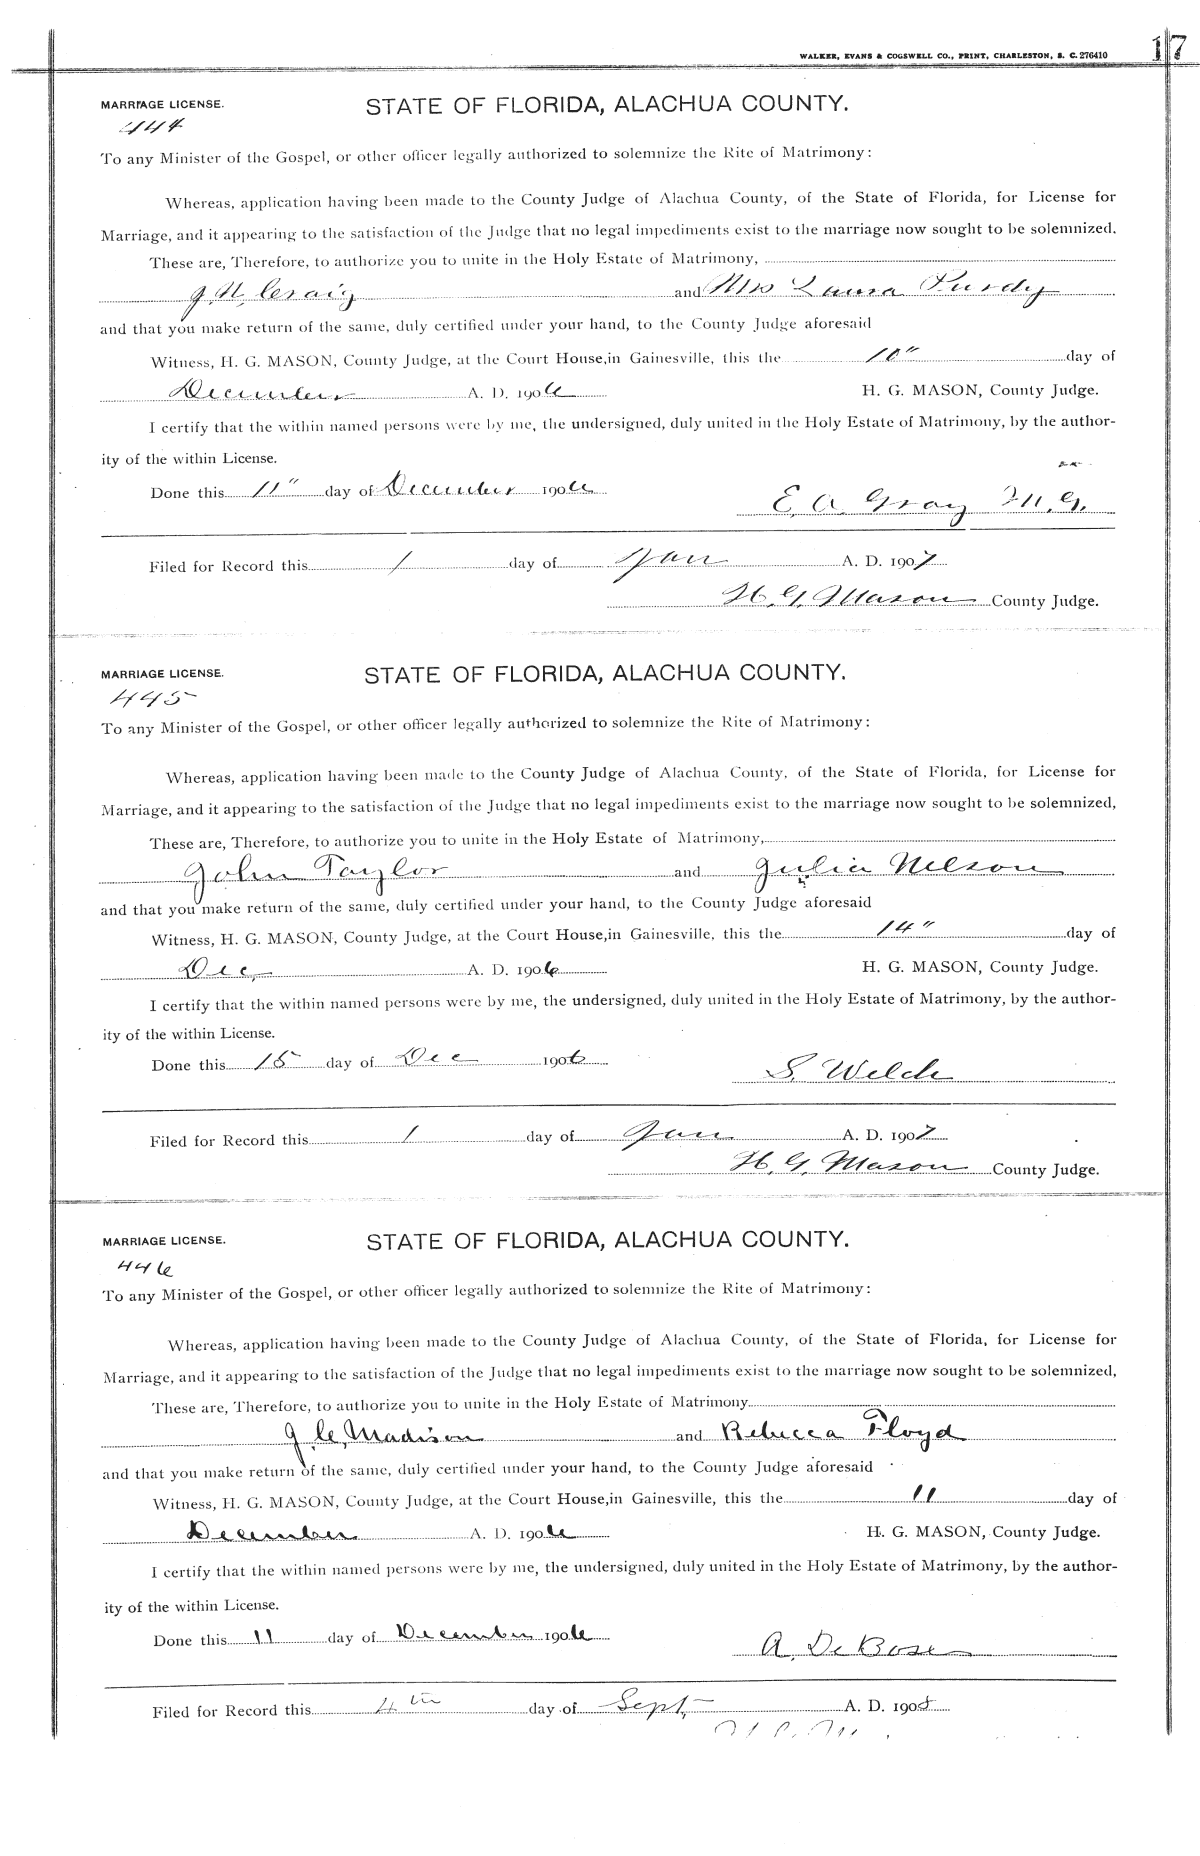 WALKER, EVANS & COGSWELL CO., PRINT, CHARLESTON, S. C. 276410
17
MARRIAGE LICENSE. STATE OF FLORIDA, ALACHUA COUNTY.
444
To any Minister of the Gospel, or other officer legally authorized to solemnize the Rite of Matrimony:
Whereas, application having been made to the County Judge of Alachua County, of the State of Florida, for License for
Marriage, and it appearing to the satisfaction of the Judge that no legal impediments exist to the marriage now sought to be solemnized.
These are, Therefore, to authorize you to unite in the Holy Estate of Matrimony,
J. N. Craig and Mrs Laura Purdy
and that you make return of the same, duly certified under your hand, to the County Judge aforesaid
Witness, H. G. MASON, County Judge, at the Court House, in Gainesville, this the 10" day of
December A. D. 1906 H. G. MASON, County Judge.
I certify that the within named persons were by me, the undersigned, duly united in the Holy Estate of Matrimony, by the author-
ity of the within License.
Done this 11" day of December 1906
E. A. Gray M. G.
Filed for Record this 1 day of Jan A. D. 1907
H. G. Mason County Judge.
MARRIAGE LICENSE. STATE OF FLORIDA, ALACHUA COUNTY.
445
To any Minister of the Gospel, or other officer legally authorized to solemnize the Rite of Matrimony:
Whereas, application having been made to the County Judge of Alachua County, of the State of Florida, for License for
Marriage, and it appearing to the satisfaction of the Judge that no legal impediments exist to the marriage now sought to be solemnized,
These are, Therefore, to authorize you to unite in the Holy Estate of Matrimony,
John Taylor and Julia Nelson
and that you make return of the same, duly certified under your hand, to the County Judge aforesaid
Witness, H. G. MASON, County Judge, at the Court House, in Gainesville, this the 14" day of
Dec, A. D. 1906 H. G. MASON, County Judge.
I certify that the within named persons were by me, the undersigned, duly united in the Holy Estate of Matrimony, by the author-
ity of the within License.
Done this 15 day of Dec 1906
S. Welch
Filed for Record this 1 day of Jan A. D. 1907
H. G. Mason County Judge.
MARRIAGE LICENSE. STATE OF FLORIDA, ALACHUA COUNTY.
446
To any Minister of the Gospel, or other officer legally authorized to solemnize the Rite of Matrimony:
Whereas, application having been made to the County Judge of Alachua County, of the State of Florida, for License for
Marriage, and it appearing to the satisfaction of the Judge that no legal impediments exist to the marriage now sought to be solemnized,
These are, Therefore, to authorize you to unite in the Holy Estate of Matrimony
J. C. Madison and Rebecca Floyd
and that you make return of the same, duly certified under your hand, to the County Judge aforesaid
Witness, H. G. MASON, County Judge, at the Court House, in Gainesville, this the 11 day of
December A. D. 1906 H. G. MASON, County Judge.
I certify that the within named persons were by me, the undersigned, duly united in the Holy Estate of Matrimony, by the author-
ity of the within License.
Done this 11 day of December 1906
A. DeBose
Filed for Record this 4th day of Sept, A. D. 1908